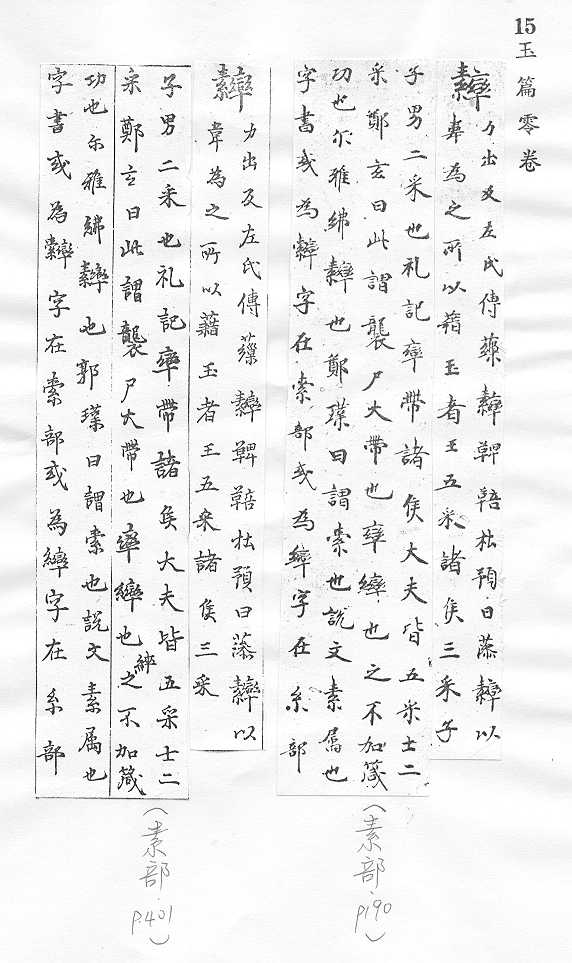 15
玉篇零卷
䋎 力出反左氏傳藻䋎鞞鞛杜預曰藻䋎以
韋為之所以藉玉者王五采諸侯三采子
子男二采也礼記率帶諸侯大夫皆五采士二
采鄭玄曰此謂襲尸大帶也率繂也之不加箴
功也尔雅紼䋎也鄭璞曰謂索也說文素属也
字書或為䋎字在索部或為繂字在糸部
(素部. p190)
䋎 力出反左氏傳薻䋎鞞鞛杜預曰藻䋎以
韋為之所以藉玉者王五采諸侯三采
子男二采也礼記率帶諸侯大夫皆五采士二
采鄭玄曰此謂襲尸大帶也率繂也繂之不加箴
功也尔雅紼䋎也郭璞曰謂索也說文素属也
字書或為䋎字在索部或為繂字在糸部
(素部. p.401)